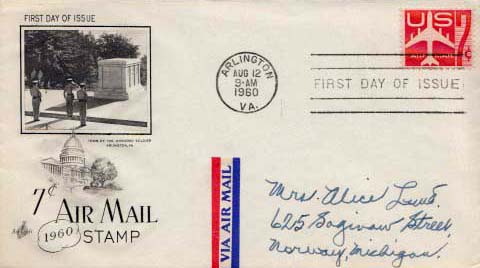 FIRST DAY OF ISSUE
TOMB OF THE UNKNOWN SOLDIER
ARLINGTON, VA.
7¢ AIR MAIL
1960 STAMP
ArtCraft
ARLINGTON
AUG 12
9-AM
1960
VA.
FIRST DAY OF ISSUE
US
7¢
AIR MAIL
VIA AIR MAIL
Mrs. Alice
625 Saginaw Street,
Norway, Michigan.